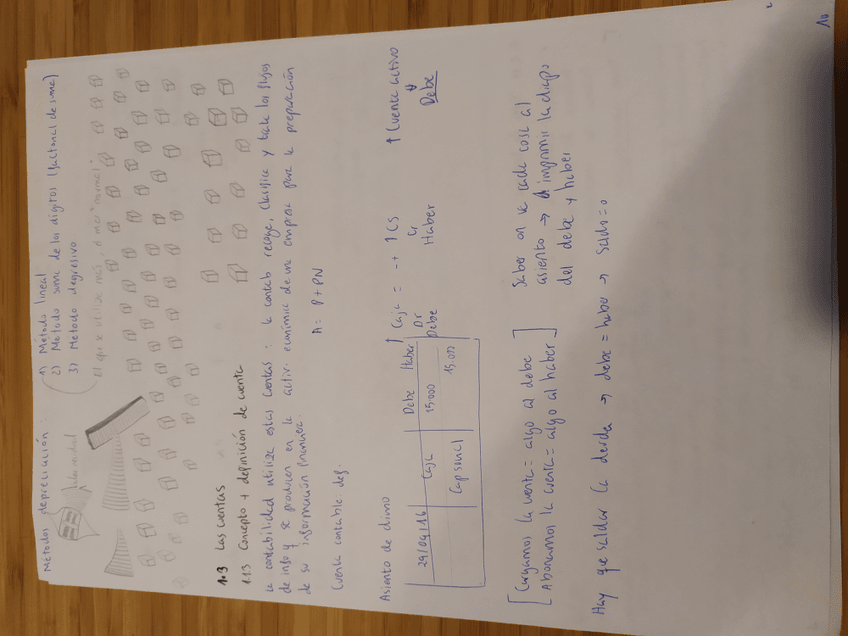 Métodos depreciación
1) Método lineal
2) Método suma de los dígitos (factorial de suma)
3) Método degresivo
El que se utiliza más, o más "normal".
1.3 Las cuentas
1.1.3 Concepto y definición de cuenta
La contabilidad utiliza estas cuentas : la contab recoge, clasifica y trata los flujos
de info y se producen en la activ. económica de una empresa para la preparación
de su información financiera.
A = P + PN
Cuenta contable: def.
Asiento de diario
Debe Haber
29/04/16 Caja 15.000
Cap social 15.000
↑ Caja = -+ ↑ CS
Dr Cr
Debe Haber
↑ Cuenta activo
↓
Debe
[Cargamos la cuenta = algo al debe
Abonamos la cuenta = algo al haber]
Saber on va cada cosa al
asiento → imprimir la diapo
del debe y haber
Hay que saldar la deuda → debe = haber → saldo = 0
10